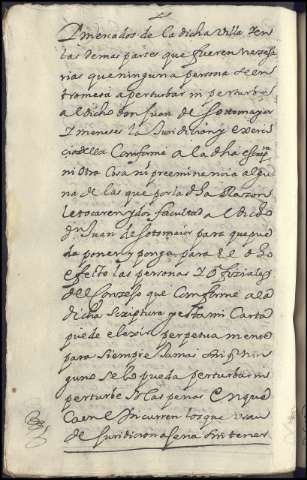 y mercados de la dicha Villa y en
las demas partes que fueren necessa
rias que ninguna persona se en
trometa a perturbar ni perturbe
al dicho don Juan de sottomayor
y meneses la Jurisdicion y exerci
cio della Conforme a la dha escrip.ra
ni otra Cosa ni preeminencia algu
na de las que por la dha Razon
le tocaren y doy facultad al dicho
Don Juan de sotomaior para que pue
da poner y ponga para el dho
efecto las personas y officiales
del Conzejo que Conforme a la
dicha scriptura y esta mi Carta
puede elexir perpetua mente
para siempre Jamas sin q nin
guno se lo pueda perturbar ni
perturbe so las penas En que
Caen e Incurren los que usan
de Juridicion agena sin tener